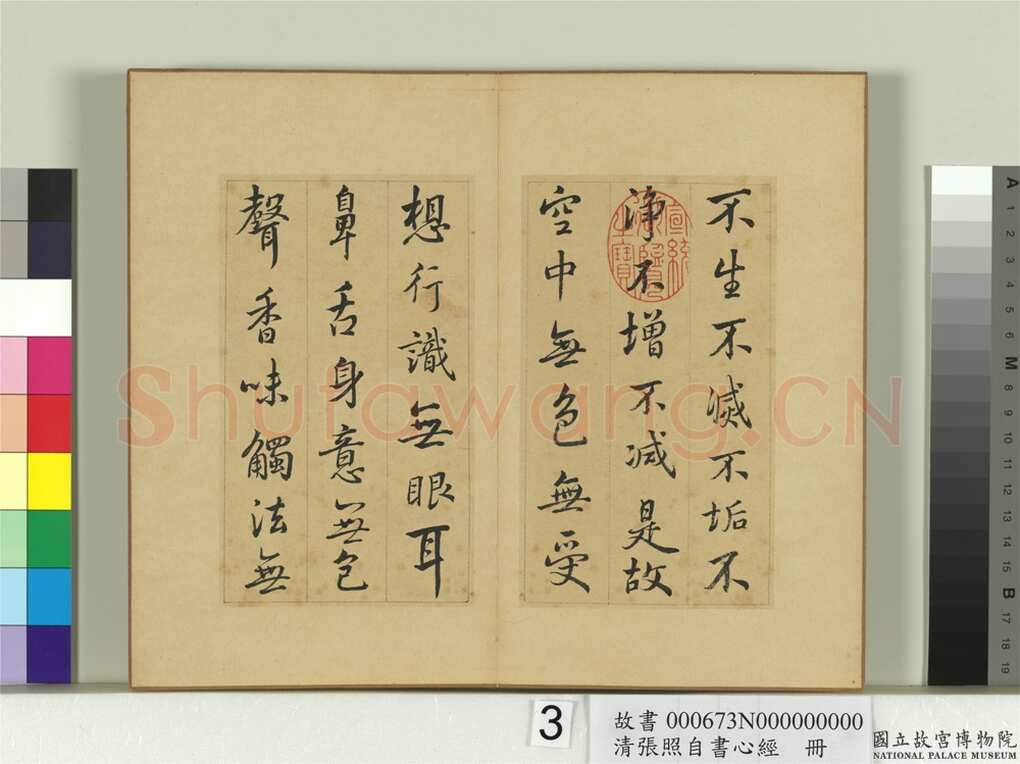 不生不滅不垢不
淨不增不減是故
空中無色無受
想行識無眼耳
鼻舌身意無色
聲香味觸法無
宣統御覽之寶
Shufawang.CN
3
故書 000673N000000000
清張照自書心經 冊
國立故宮博物院
NATIONAL PALACE MUSEUM
A 1 2 3 4 5 6 M 8 9 10 11 12 13 14 15 B 17 18 19